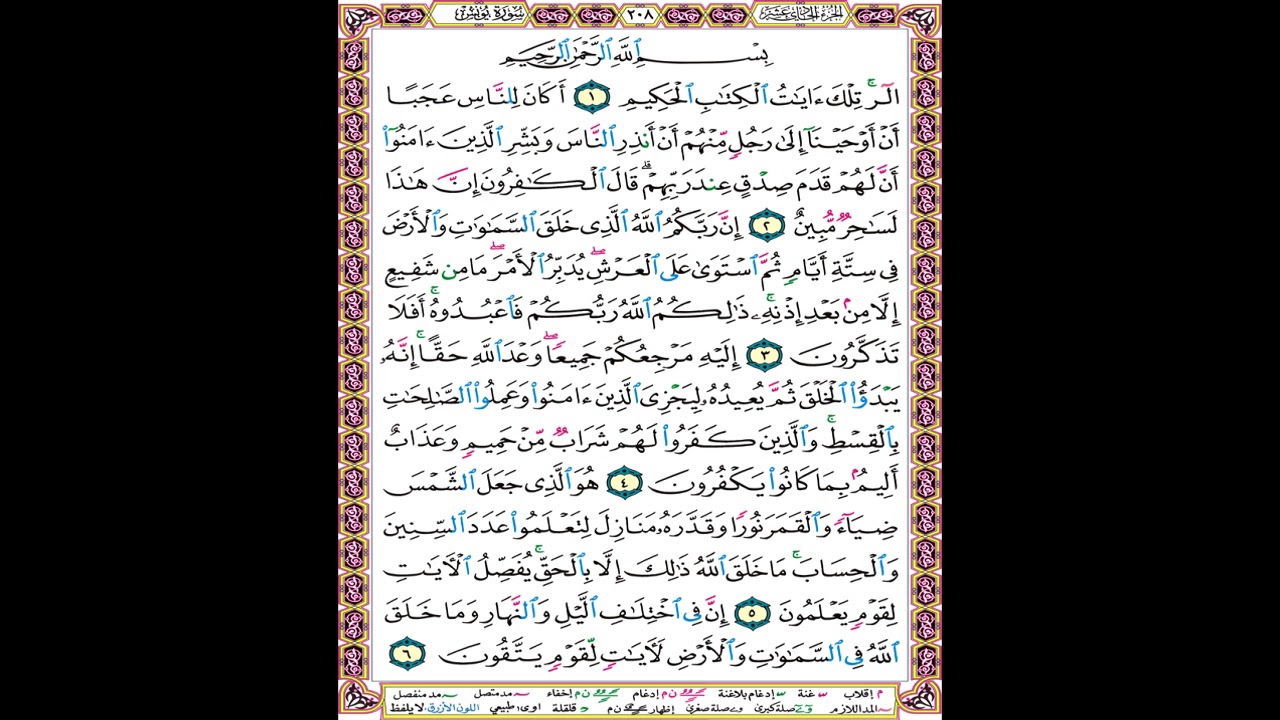 الجزء الحادي عشر ٢٠٨ سورة يونس
بِسْمِ ٱللَّهِ ٱلرَّحْمَٰنِ ٱلرَّحِيمِ
الٓرۚ تِلْكَ ءَايَٰتُ ٱلْكِتَٰبِ ٱلْحَكِيمِ ١ أَكَانَ لِلنَّاسِ عَجَبًا
أَنْ أَوْحَيْنَآ إِلَىٰ رَجُلٍ مِّنْهُمْ أَنْ أَنذِرِ ٱلنَّاسَ وَبَشِّرِ ٱلَّذِينَ ءَامَنُوٓا۟
أَنَّ لَهُمْ قَدَمَ صِدْقٍ عِندَ رَبِّهِمْۗ قَالَ ٱلْكَٰفِرُونَ إِنَّ هَٰذَا
لَسَٰحِرٌ مُّبِينٌ ٢ إِنَّ رَبَّكُمُ ٱللَّهُ ٱلَّذِى خَلَقَ ٱلسَّمَٰوَٰتِ وَٱلْأَرْضَ
فِى سِتَّةِ أَيَّامٍ ثُمَّ ٱسْتَوَىٰ عَلَى ٱلْعَرْشِۖ يُدَبِّرُ ٱلْأَمْرَۖ مَا مِن شَفِيعٍ
إِلَّا مِنۢ بَعْدِ إِذْنِهِۦۚ ذَٰلِكُمُ ٱللَّهُ رَبُّكُمْ فَٱعْبُدُوهُۚ أَفَلَا
تَذَكَّرُونَ ٣ إِلَيْهِ مَرْجِعُكُمْ جَمِيعًاۖ وَعْدَ ٱللَّهِ حَقًّاۚ إِنَّهُۥ
يَبْدَؤُا۟ ٱلْخَلْقَ ثُمَّ يُعِيدُهُۥ لِيَجْزِىَ ٱلَّذِينَ ءَامَنُوا۟ وَعَمِلُوا۟ ٱلصَّٰلِحَٰتِ
بِٱلْقِسْطِۚ وَٱلَّذِينَ كَفَرُوا۟ لَهُمْ شَرَابٌ مِّنْ حَمِيمٍ وَعَذَابٌ
أَلِيمٌۢ بِمَا كَانُوا۟ يَكْفُرُونَ ٤ هُوَ ٱلَّذِى جَعَلَ ٱلشَّمْسَ
ضِيَآءً وَٱلْقَمَرَ نُورًا وَقَدَّرَهُۥ مَنَازِلَ لِتَعْلَمُوا۟ عَدَدَ ٱلسِّنِينَ
وَٱلْحِسَابَۚ مَا خَلَقَ ٱللَّهُ ذَٰلِكَ إِلَّا بِٱلْحَقِّۚ يُفَصِّلُ ٱلْءَايَٰتِ
لِقَوْمٍ يَعْلَمُونَ ٥ إِنَّ فِى ٱخْتِلَٰفِ ٱلَّيْلِ وَٱلنَّهَارِ وَمَا خَلَقَ
ٱللَّهُ فِى ٱلسَّمَٰوَٰتِ وَٱلْأَرْضِ لَءَايَٰتٍ لِّقَوْمٍ يَتَّقُونَ ٦
م إقلاب غنة إدغام بلاغنة ن م إدغام ن م إخفاء مد متصل مد منفصل
المد اللازم صلة كبرى صلة صغرى إظهار ن م قلقلة اوى: طبيعي اللون الأزرق: لا يلفظ